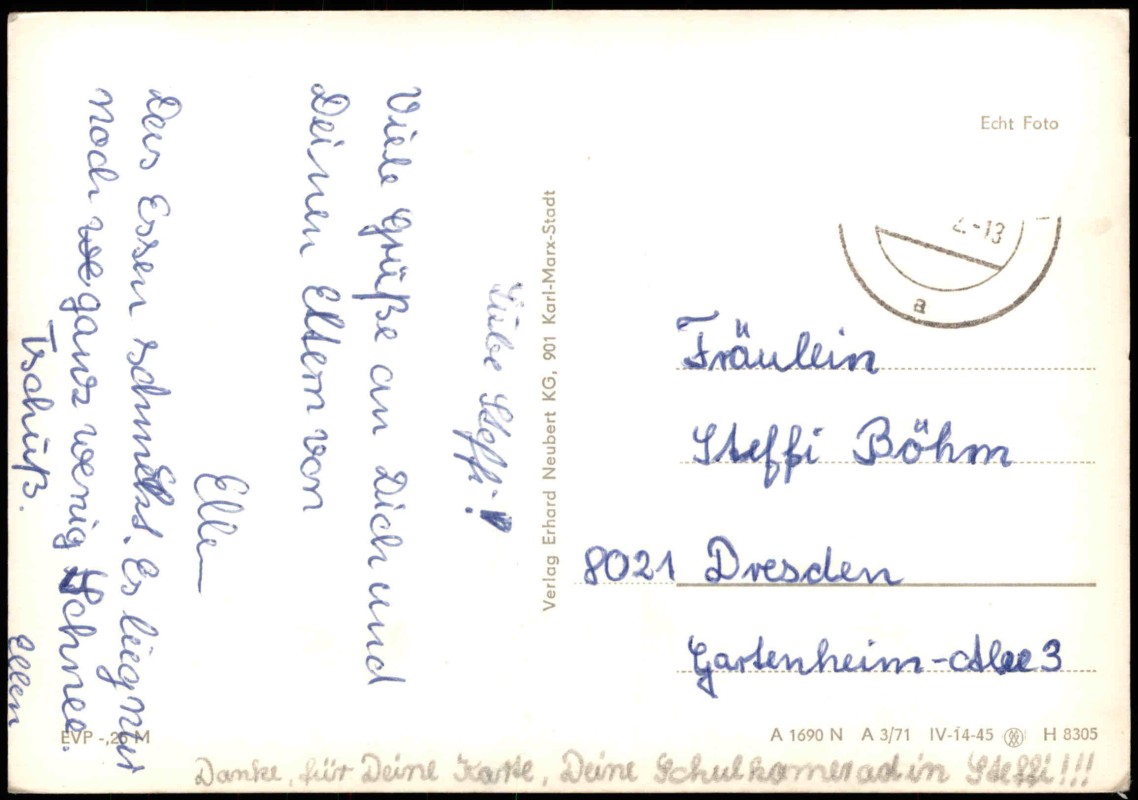 Liebe Steffi!
Viele Grüße an Dich und
Deinen Eltern von
Ellen
Das Essen schmekt. Es liegt nur
noch ganz wenig Schnee.
Tschüß.
Ellen
Echt Foto
2.-13
a
Verlag Erhard Neubert KG, 901 Karl-Marx-Stadt
Fräulein
Steffi Böhm
8021 Dresden
Gartenheim-Allee 3
EVP -,25 M
A 1690 N A 3/71 IV-14-45 H 8305
Danke, für Deine Karte, Deine Schulkameradin Steffi!!!